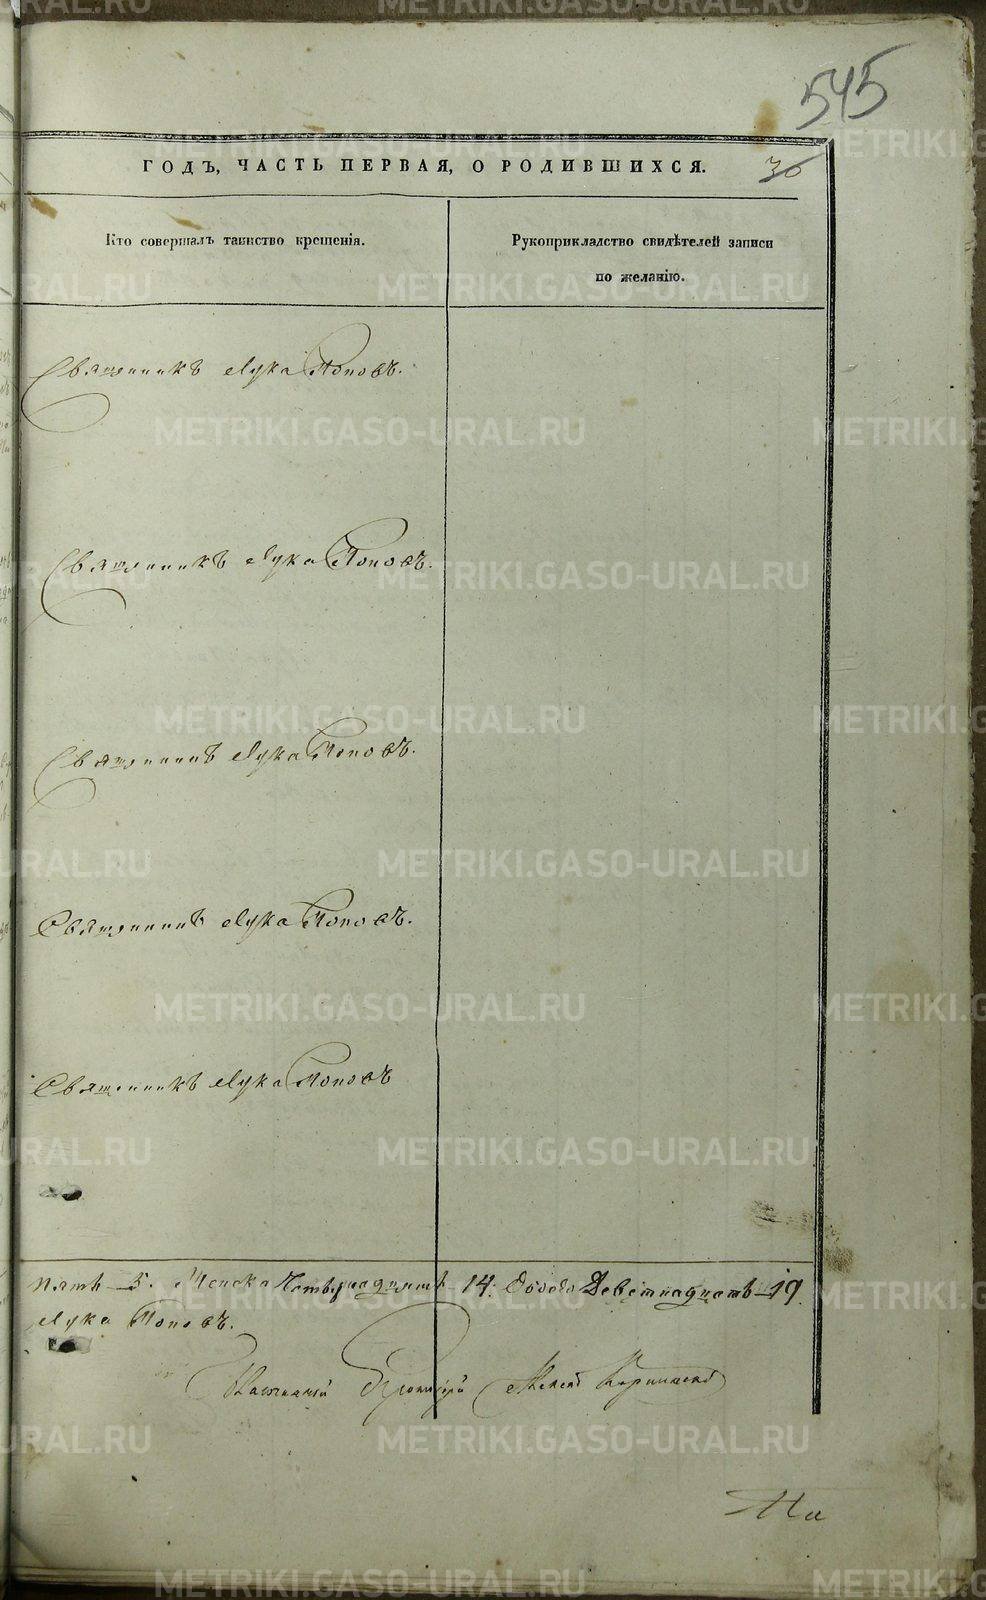 545
ГОДЪ, ЧАСТЬ ПЕРВАЯ, О РОДИВШИХСЯ.
36
Кто совершалъ таинство крещенія.
Рукоприкладство свидѣтелей записи
по желанію.
Священникъ Лука Поповъ.
Священникъ Лука Поповъ.
Священникъ Лука Поповъ.
Священникъ Лука Поповъ.
Священникъ Лука Поповъ
пять 5. Женска Четырнадцать 14. Обоего Девятнадцать 19.
Лука Поповъ.
METRIKI.GASO-URAL.RU